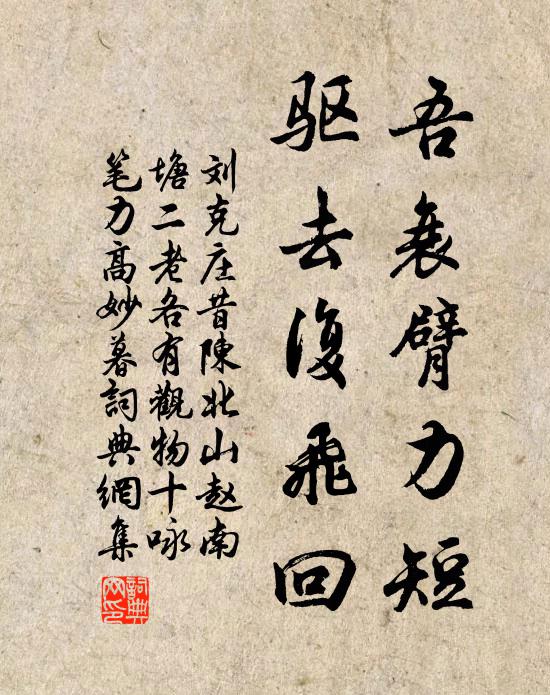 吾衰臂力短
驱去復飛回
刘克庄昔陳北山赵南
塘二老各有觀物十咏
笔力高妙暮詞典網集
詞典网印